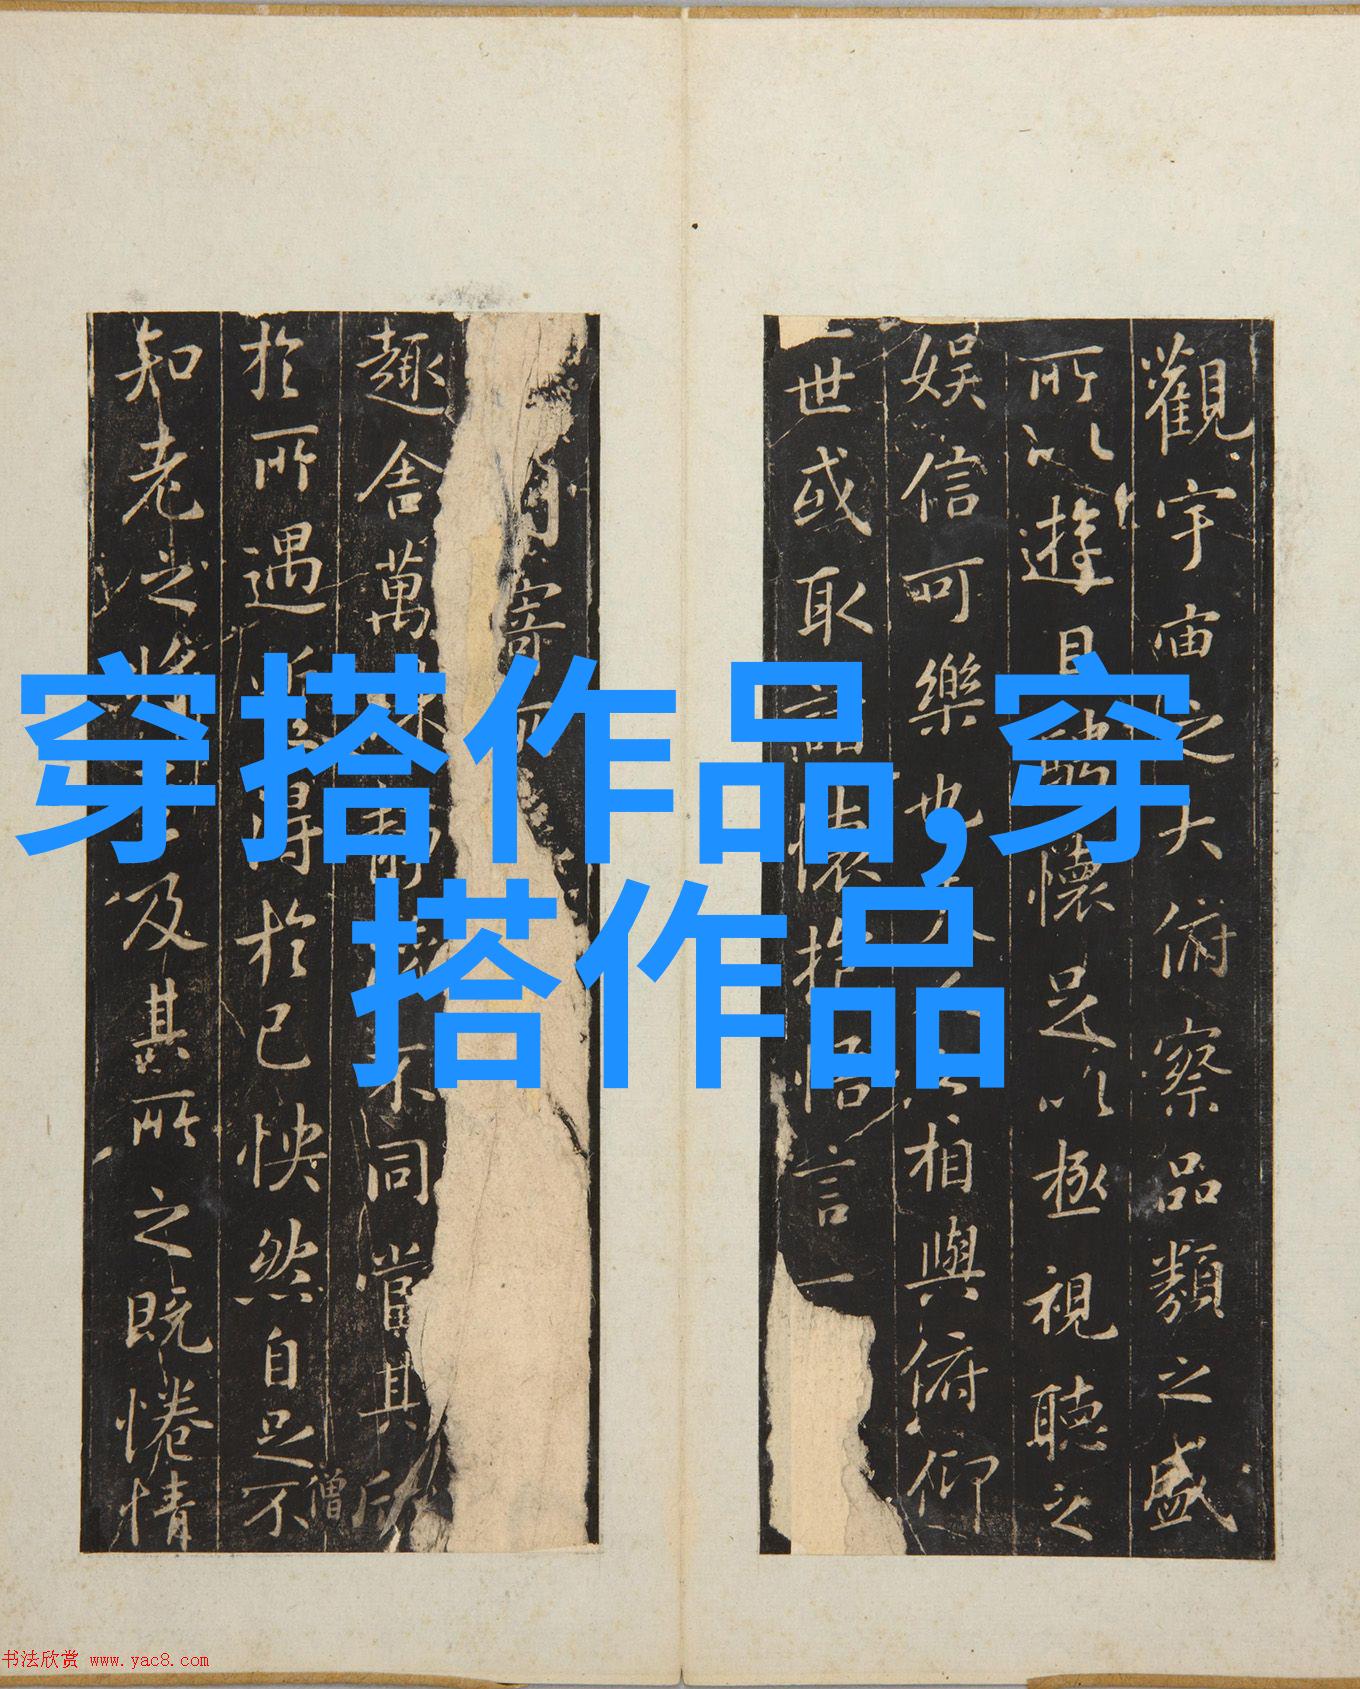 觀宇宙之大俯察品類之盛
所以遊目懷足以極視聽之
娱信可樂也相與俯仰
一世或取諸懷抱悟言一
寄
趣舍萬不同當其欣
僧
於所遇得於己怏然自足不
知老之将及其所之既惓情
穿搭作品,穿
搭作品
书法欣赏 www.yac8.com